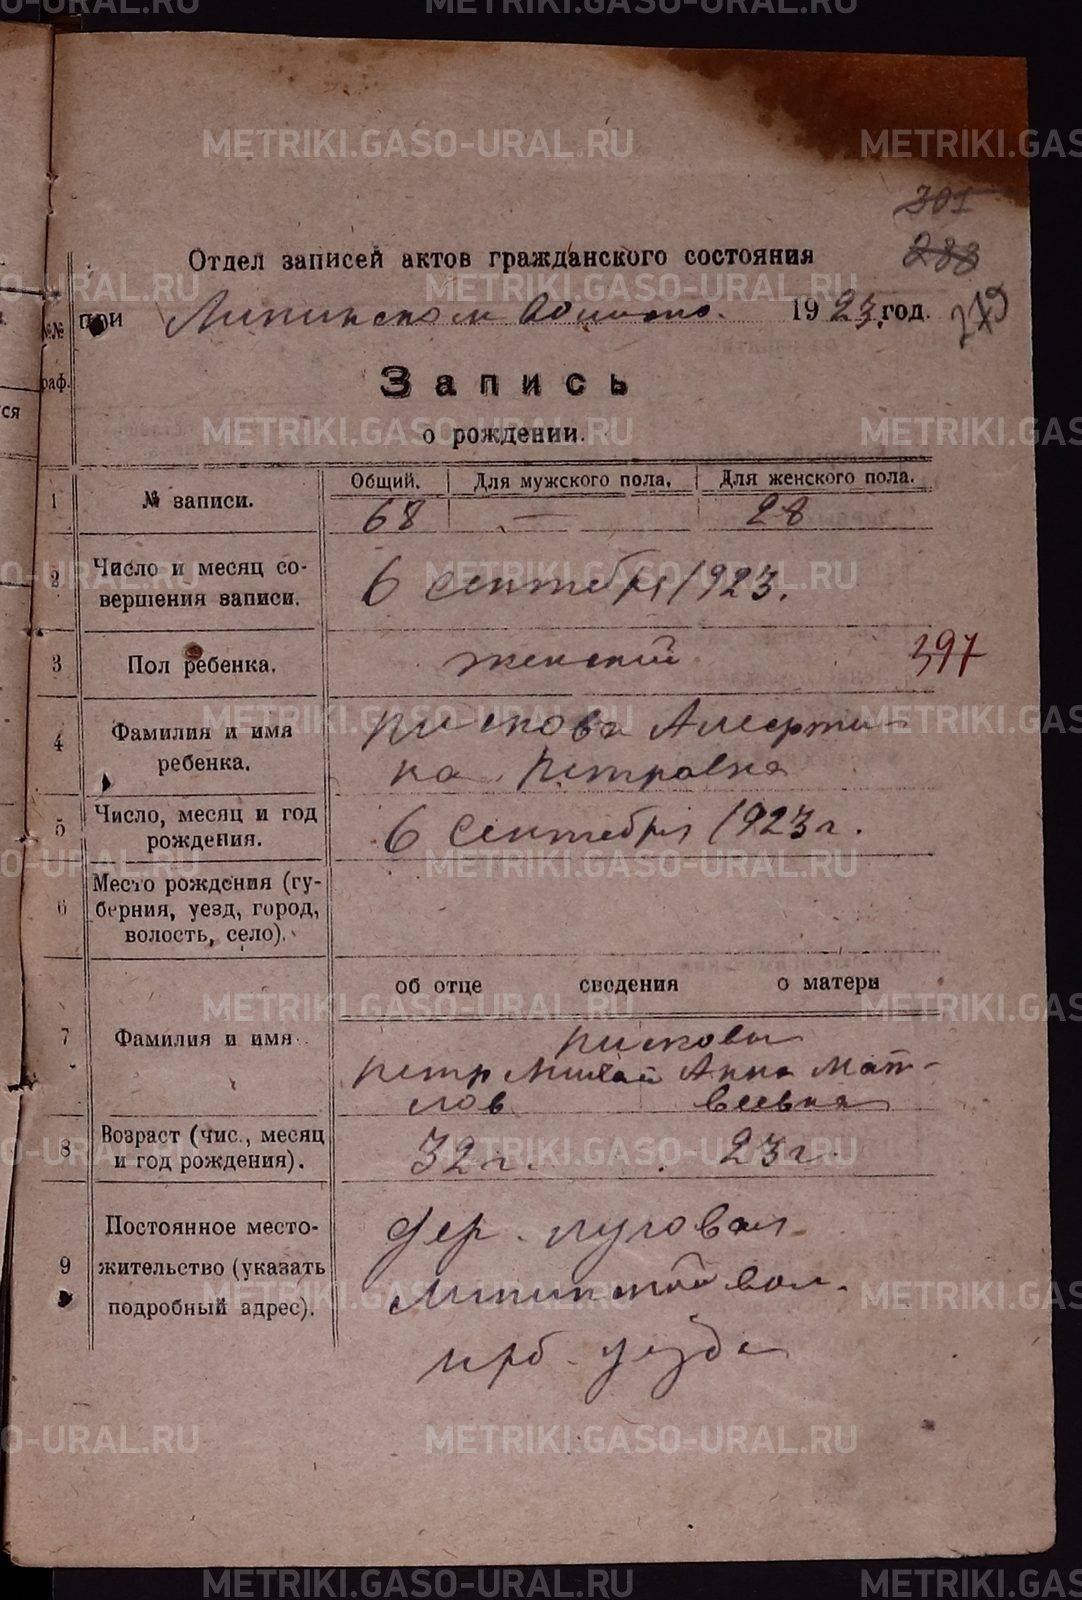 METRIKI.GASO-URAL.RU
301
288
Отдел записей актов гражданского состояния
№№ граф.
при Липинском 1923 год. 279
Запись
о рождении.
Общий. Для мужского пола. Для женского пола.
1 № записи. 68 — 28
2 Число и месяц со-
вершения записи. 6 сентября 1923.
3 Пол ребенка. женский 397
4 Фамилия и имя
ребенка. Пискова Алевти-
на Петровна
5 Число, месяц и год
рождения. 6 Сентября 1923 г.
6 Место рождения (гу-
берния, уезд, город,
волость, село).
об отце сведения о матери
7 Фамилия и имя Писковы
Петр Михай Анна Мат-
лов веевна
8 Возраст (чис., месяц
и год рождения). 32 г. 23 г.
9 Постоянное место-
жительство (указать
подробный адрес).
дер. Луговая
Липинской вол.
Ирб. уезда